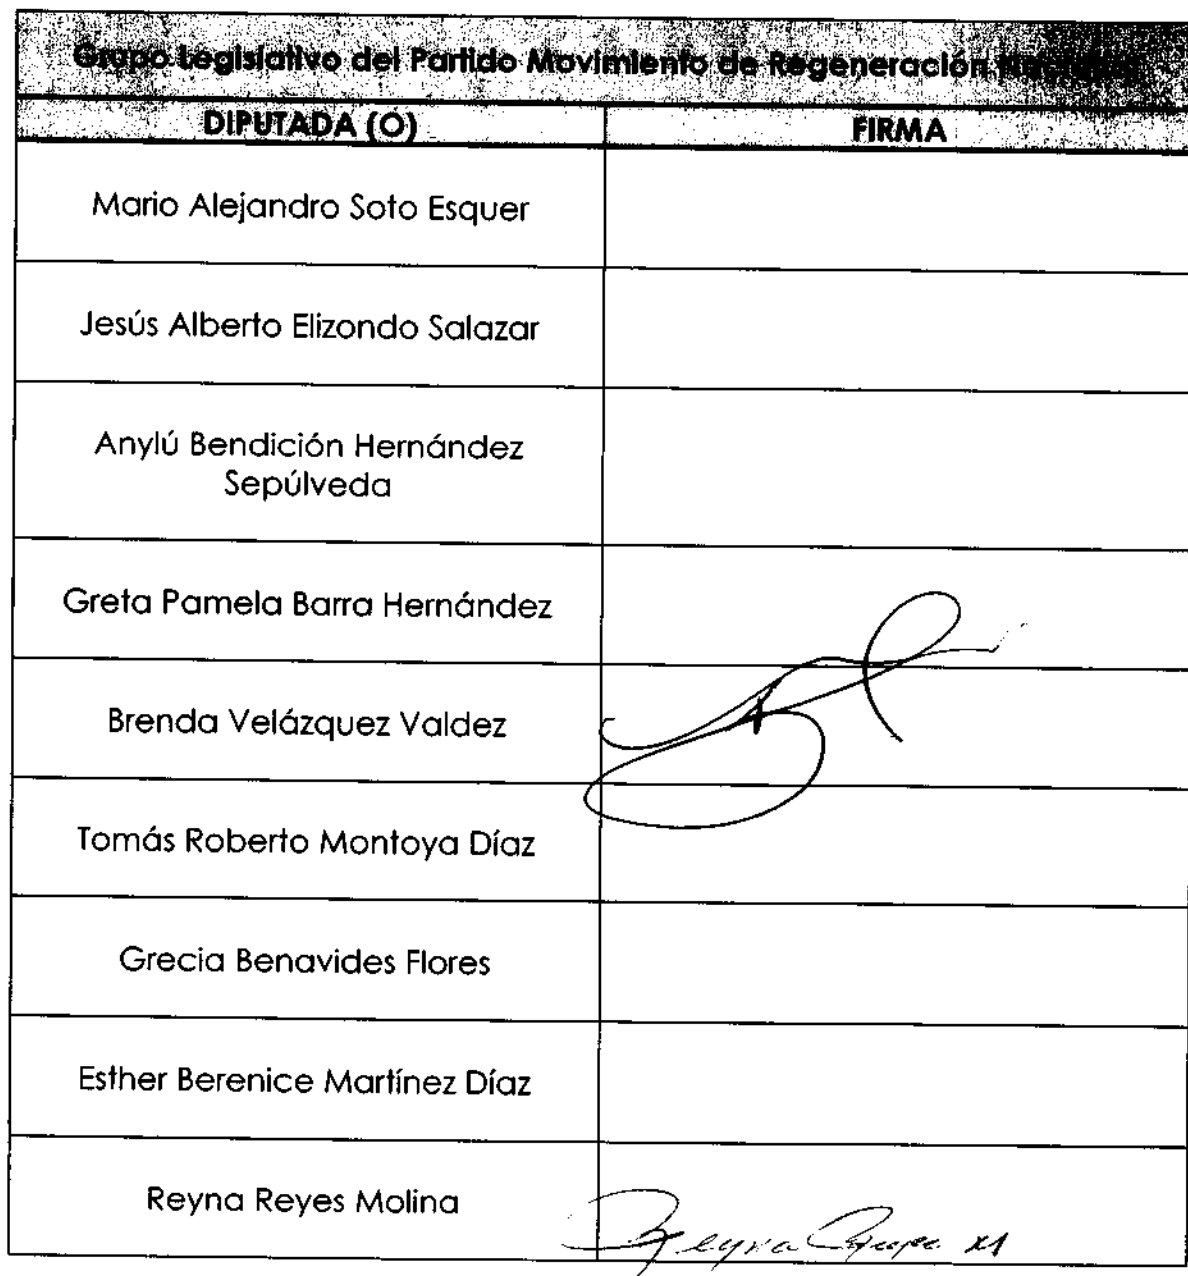 Grupo Legislativo del Partido Movimiento de Regeneración
DIPUTADA (O) FIRMA
Mario Alejandro Soto Esquer
Jesús Alberto Elizondo Salazar
Anylú Bendición Hernández
Sepúlveda
Greta Pamela Barra Hernández
Brenda Velázquez Valdez
Tomás Roberto Montoya Díaz
Grecia Benavides Flores
Esther Berenice Martínez Díaz
Reyna Reyes Molina
Reyna Reyes M